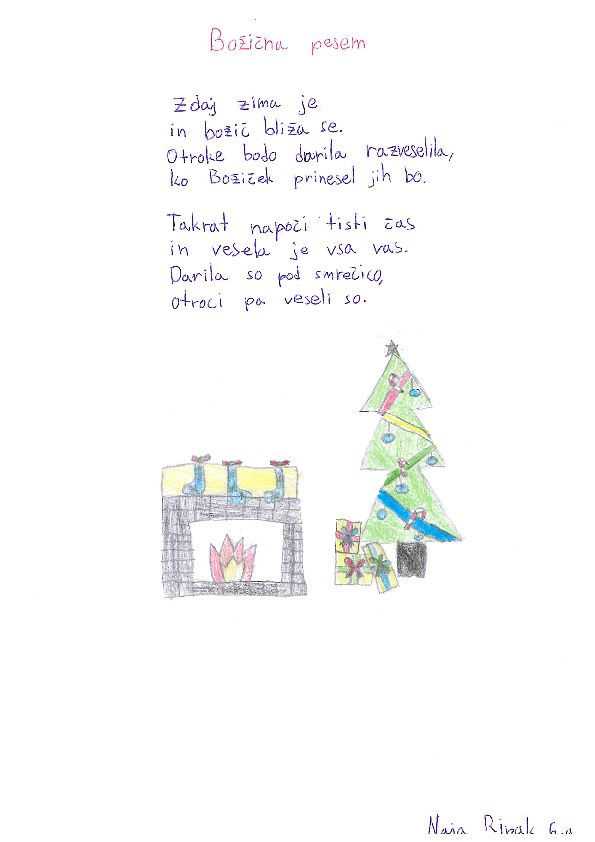 Božična pesem
Zdaj zima je
in božič bliža se.
Otroke bodo darila razveselila,
ko Božiček prinesel jih bo.
Takrat napoči tisti čas
in vesela je vsa vas.
Darila so pod smrečico,
otroci pa veseli so.
6.a